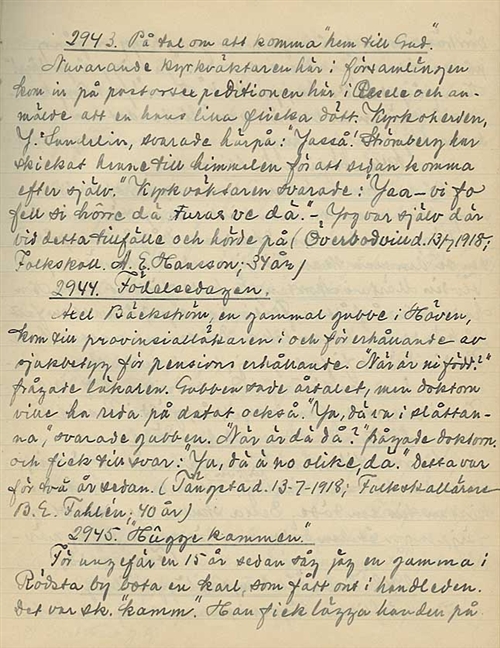 2943. På tal om att komma "hem till Gud."
Nuvarande kyrkväktaren här i församlingen
kom in på pastorsexpeditionen här i Åsele och an-
mälde att en hans lilla flicka dött. Kyrkoherden,
J. Sundelin, svarade härpå: "Jasså! Strömberg har
skickat henne till himmelen för att sedan komma
efter själv." Kyrkväktaren svarade: "Jaa – vi få
fell si hörre dä turas ve dä." – Jag var själv där
vid detta tillfälle och hörde på (Överbodvill d. 13/7 1918;
Folkskoll. A. E. Hansson; 34 år)
2944. Födelsedagen.
Axel Bäckström, en gammal gubbe i Häven,
kom till provinsialläkaren i och för erhållande av
sjukbetyg för pensions erhållande. "När är ni född?"
frågade läkaren. Gubben sade årtalet, men doktorn
ville ha reda på datat också. "Ja, dä va i slåttan-
na," svarade gubben. "När är då då?" frågade doktorn.
och fick till svar: "Ja, dä ä no olike, dä." Detta var
för två år sedan. (Tångsta d. 13-7-1918; Folkskollärare
B. E. Fahlén; 40 år)
2945. "Hügge kammen."
För ungefär en 15 år sedan såg jag en gumma i
Rödsta by bota en karl, som fått ont i handleden.
Det var sk. "kamm". Han fick lägga handen på